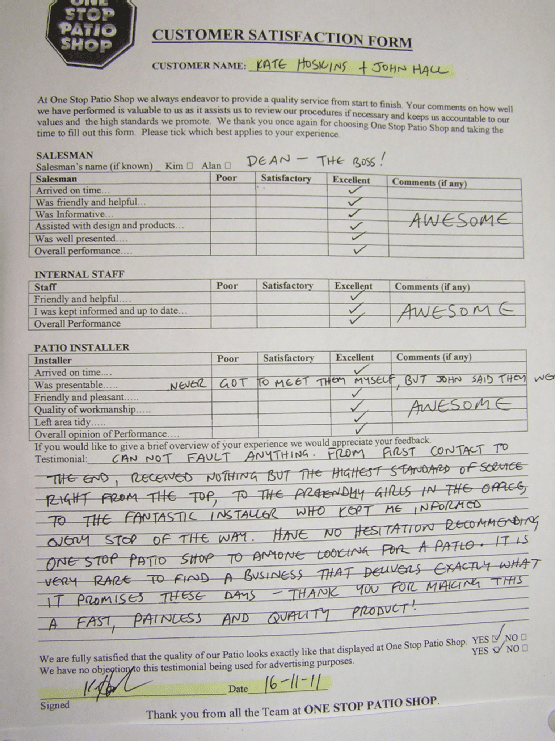 ONE
STOP
PATIO
SHOP
CUSTOMER SATISFACTION FORM
CUSTOMER NAME: KATE HOSKINS + JOHN HALL
At One Stop Patio Shop we always endeavor to provide a quality service from start to finish. Your comments on how well
we have performed is valuable to us as it assists us to review our procedures if necessary and keeps us accountable to our
values and the high standards we promote. We thank you once again for choosing One Stop Patio Shop and taking the
time to fill out this form. Please tick which best applies to your experience.
SALESMAN
Salesman's name (if known) Kim □ Alan □ DEAN - THE BOSS!
Salesman Poor Satisfactory Excellent Comments (if any)
Arrived on time... ✓
Was friendly and helpful... ✓
Was Informative... ✓ AWESOME
Assisted with design and products... ✓
Was well presented.... ✓
Overall performance.... ✓
INTERNAL STAFF
Staff Poor Satisfactory Excellent Comments (if any)
Friendly and helpful.... ✓
I was kept informed and up to date... ✓ AWESOME
Overall Performance ✓
PATIO INSTALLER
Installer Poor Satisfactory Excellent Comments (if any)
Arrived on time.... ✓
Was presentable..... NEVER GOT TO MEET THEM MYSELF, BUT JOHN SAID THEY WE
Friendly and pleasant.... ✓
Quality of workmanship.... ✓ AWESOME
Left area tidy..... ✓
Overall opinion of Performance.... ✓
If you would like to give a brief overview of your experience we would appreciate your feedback.
Testimonial: CAN NOT FAULT ANYTHING. FROM FIRST CONTACT TO
THE END, RECEIVED NOTHING BUT THE HIGHEST STANDARD OF SERVICE
RIGHT FROM THE TOP, TO THE GIRLS IN THE OFFICE,
TO THE FANTASTIC INSTALLER WHO KEPT ME INFORMED
EVERY STOP OF THE WAY. HAVE NO HESITATION RECOMMENDING
ONE STOP PATIO SHOP TO ANYONE LOOKING FOR A PATIO. IT IS
VERY RARE TO FIND A BUSINESS THAT DELIVERS EXACTLY WHAT
IT PROMISES THESE DAYS - THANK YOU FOR MAKING THIS
A FAST, PAINLESS AND QUALITY PRODUCT!
We are fully satisfied that the quality of our Patio looks exactly like that displayed at One Stop Patio Shop. YES ☑ NO □
We have no objection to this testimonial being used for advertising purposes. YES ☑ NO □
Signed Date 16-11-11
Thank you from all the Team at ONE STOP PATIO SHOP.